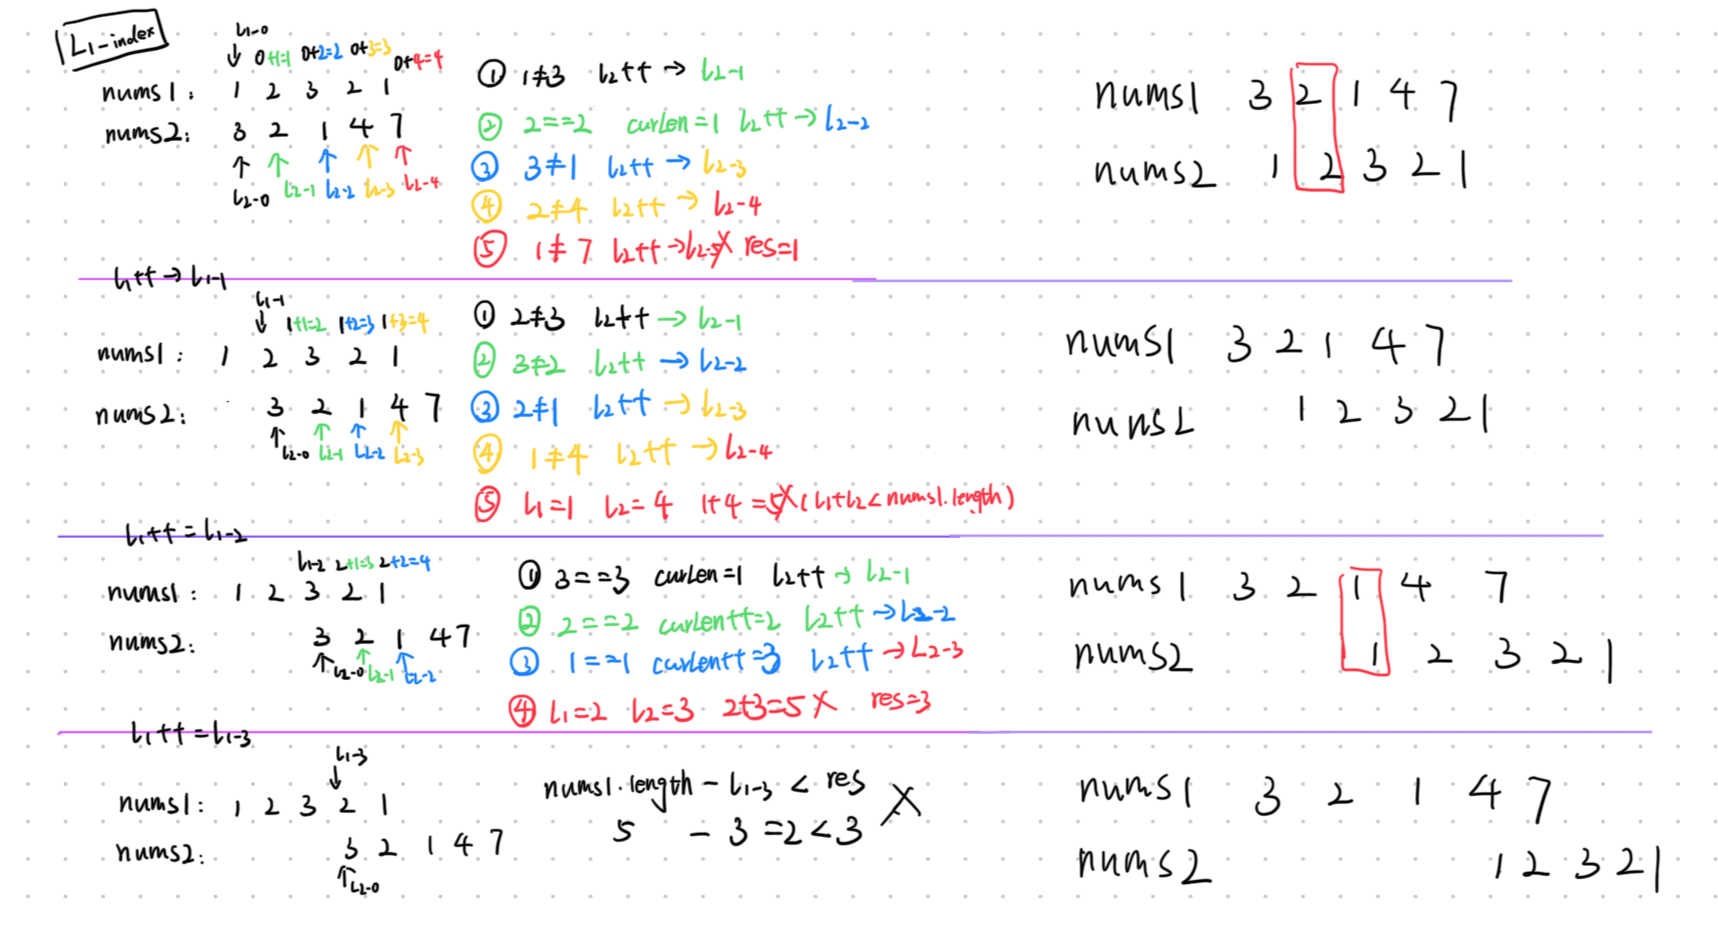 L1-index
L1-0
0+1=1 0+2=2 0+3=3 0+4=4
nums1: 1 2 3 2 1
nums2: 3 2 1 4 7
L2-0 L2-1 L2-2 L2-3 L2-4
① 1≠3 L2++ → L2-1
② 2==2 curLen=1 L2++ → L2-2
③ 3≠1 L2++ → L2-3
④ 2≠4 L2++ → L2-4
⑤ 1≠7 L2++ → L2-5 X res=1
nums1 3 2 1 4 7
nums2 1 2 3 2 1
L1++ → L1-1
L1-1
1+1=2 1+2=3 1+3=4
nums1: 1 2 3 2 1
nums2: 3 2 1 4 7
L2-0 L2-1 L2-2 L2-3
① 2≠3 L2++ → L2-1
② 3≠2 L2++ → L2-2
③ 2≠1 L2++ → L2-3
④ 1≠4 L2++ → L2-4
⑤ L1=1 L2=4 1+4=5 X (L1+L2<nums1.length)
nums1 3 2 1 4 7
nums2 1 2 3 2 1
L1++ = L1-2
L1-2 2+1=3 2+2=4
nums1: 1 2 3 2 1
nums2: 3 2 1 4 7
L2-0 L2-1 L2-2
① 3==3 curLen=1 L2++ → L2-1
② 2==2 curLen++=2 L2++ → L2-2
③ 1==1 curLen++=3 L2++ → L2-3
④ L1=2 L2=3 2+3=5 X res=3
nums1 3 2 1 4 7
nums2 1 2 3 2 1
L1++ = L1-3
L1-3
nums1: 1 2 3 2 1
nums2: 3 2 1 4 7
L2-0
nums1.length - L1-3 < res X
5 - 3 = 2 < 3
nums1 3 2 1 4 7
nums2 1 2 3 2 1